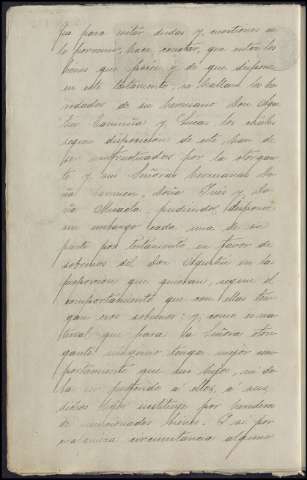 que para evitar dudas y cuestiones en
lo porvenir, hace constar, que entre los
bienes que posee y de que dispone
en este testamento, se hallan los he-
redados de su hermano Don Agus-
tin y los cuales
segun disposicion de este, han de
ser usufructuados por la otorgan-
te y sus Señoras hermanas Do-
ña Carmen, Doña Inés y Do-
ña Micaela, pudiendo, disponer
sin embargo cada una de su
parte por testamento en favor de
sobrinos del Don Agustin en la
proporcion que quieran, segun el
comportamiento que con ellas ten-
gan esos sobrinos: y, como es na-
tural que para la Señora otor-
gante ninguno tenga mejor com-
portamiento que sus hijos, sin du-
da prefiendo a ellos, a sus
dichos hijos instituye por herederos
de mencionados bienes. Y si por
cualquiera circunstancia alguno